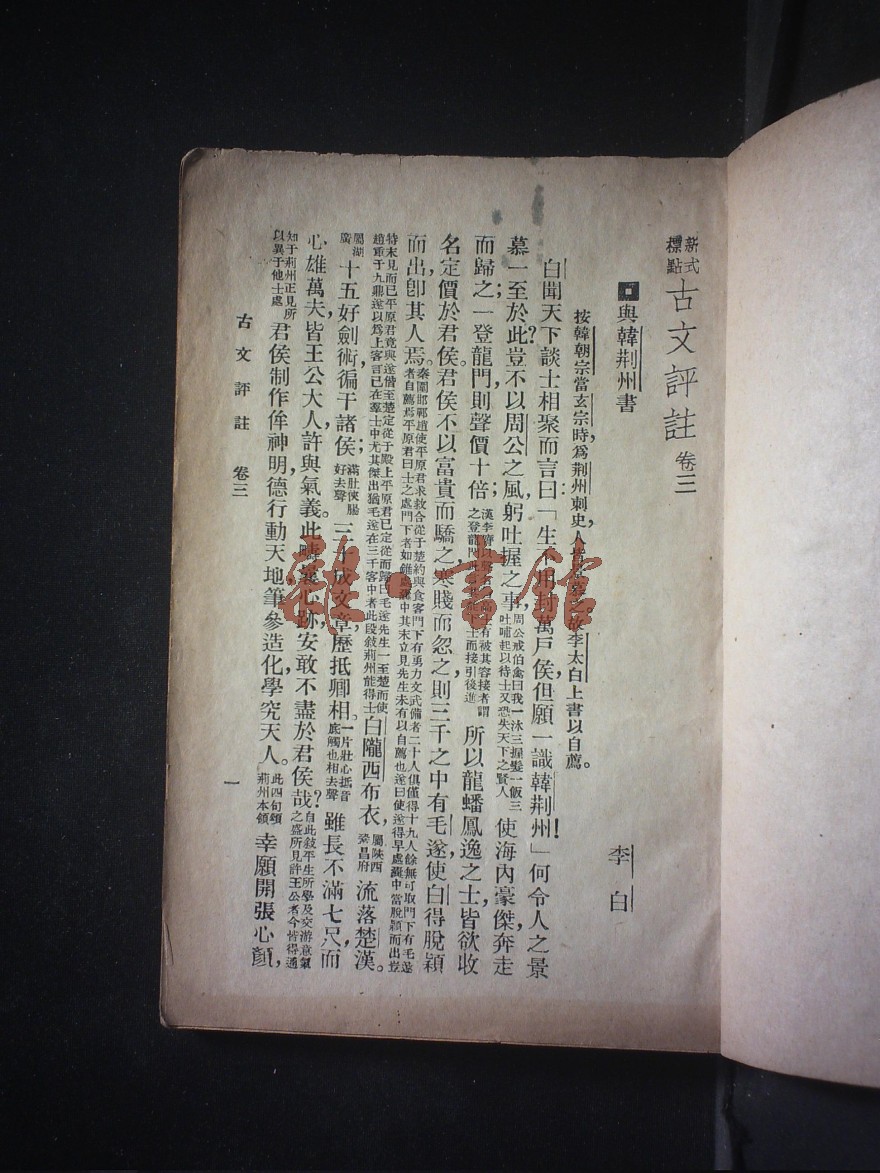 新式標點 古文評註 卷三
與韓荊州書
李白
按韓朝宗當玄宗時，爲荊州刺史，人 故李太白上書以自薦。
白聞天下談士相聚而言曰：「生不用封萬戶侯，但願一識韓荊州！」何令人之景
慕一至於此？豈不以周公之風，躬吐握之事，周公戒伯禽曰我一沐三握髮一飯三吐哺起以待士又恐失天下之賢人使海內豪傑，奔走
而歸之；一登龍門，則聲價十倍；漢李膺 有被其容接者謂之登龍門 士而接引後進所以龍蟠鳳逸之士，皆欲收
名定價於君侯。君侯不以富貴而驕之，寒賤而忽之，則三千之中有毛遂，使白得脫穎
而出，卽其人焉。秦圍邯鄲趙使平原君求救合從于楚約與食客門下有勇力文武備者二十人俱僅得十九人餘無可取門下有毛遂者自薦焉平原君曰士之處門下者如錐處囊中其末立見先生未有以自薦也遂曰使遂得早處囊中當脫穎而出豈
特末見而已平原君竟與遂偕至楚定從于殿上平原君已定從而歸曰毛遂先生一至楚而使趙重于九鼎遂以爲上客言已在羣士中尤其傑出猶毛遂在三千客中者此段敍荊州能得士白隴西布衣，屬陝西鞏昌府流落楚漢。
屬湖廣十五好劍術，徧干諸侯；滿肚俠腸好去聲三十成文章，歷抵卿相。一片壯心抵音底觸也相去聲雖長不滿七尺，而
心雄萬夫，皆王公大人，許與氣義。此疇曩心跡，安敢不盡於君侯哉？自此敍平生所學及交游意氣之盛所見許王公者今皆得通
知于荊州正見所以異于他士處君侯制作侔神明，德行動天地，筆參造化，學究天人。此四句頌荊州本領幸願開張心顏，
古文評註 卷三
一